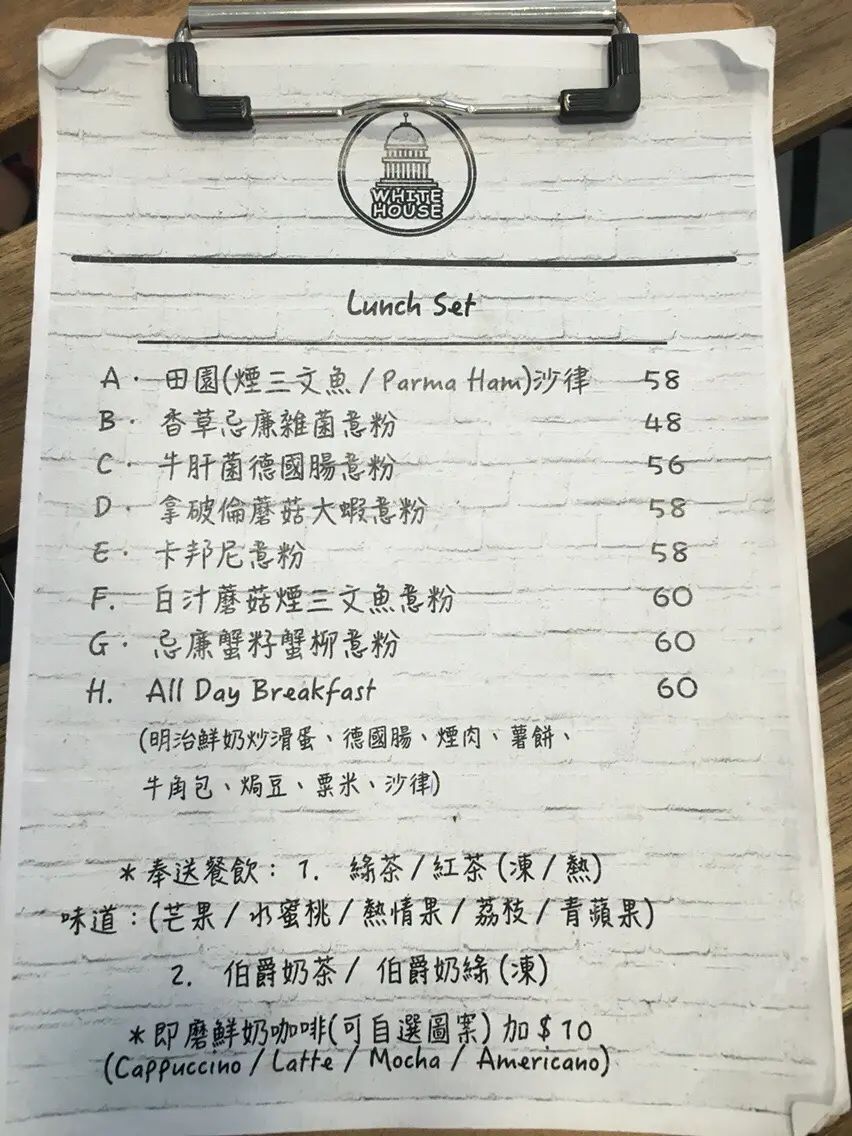 WHITE
HOUSE
Lunch Set
A. 田園(煙三文魚/Parma Ham)沙律 58
B. 香草忌廉雜菌意粉 48
C. 牛肝菌德國腸意粉 56
D. 拿破倫蘑菇大蝦意粉 58
E. 卡邦尼意粉 58
F. 白汁蘑菇煙三文魚意粉 60
G. 忌廉蟹籽蟹柳意粉 60
H. All Day Breakfast 60
(明治鮮奶炒滑蛋、德國腸、煙肉、薯餅、
牛角包、焗豆、粟米、沙律)
*奉送餐飲: 1. 綠茶/紅茶(凍/熱)
味道:(芒果/水蜜桃/熱情果/荔枝/青蘋果)
2. 伯爵奶茶/ 伯爵奶綠(凍)
*即磨鮮奶咖啡(可自選圖案)加$10
(Cappuccino/Latte/Mocha/Americano)